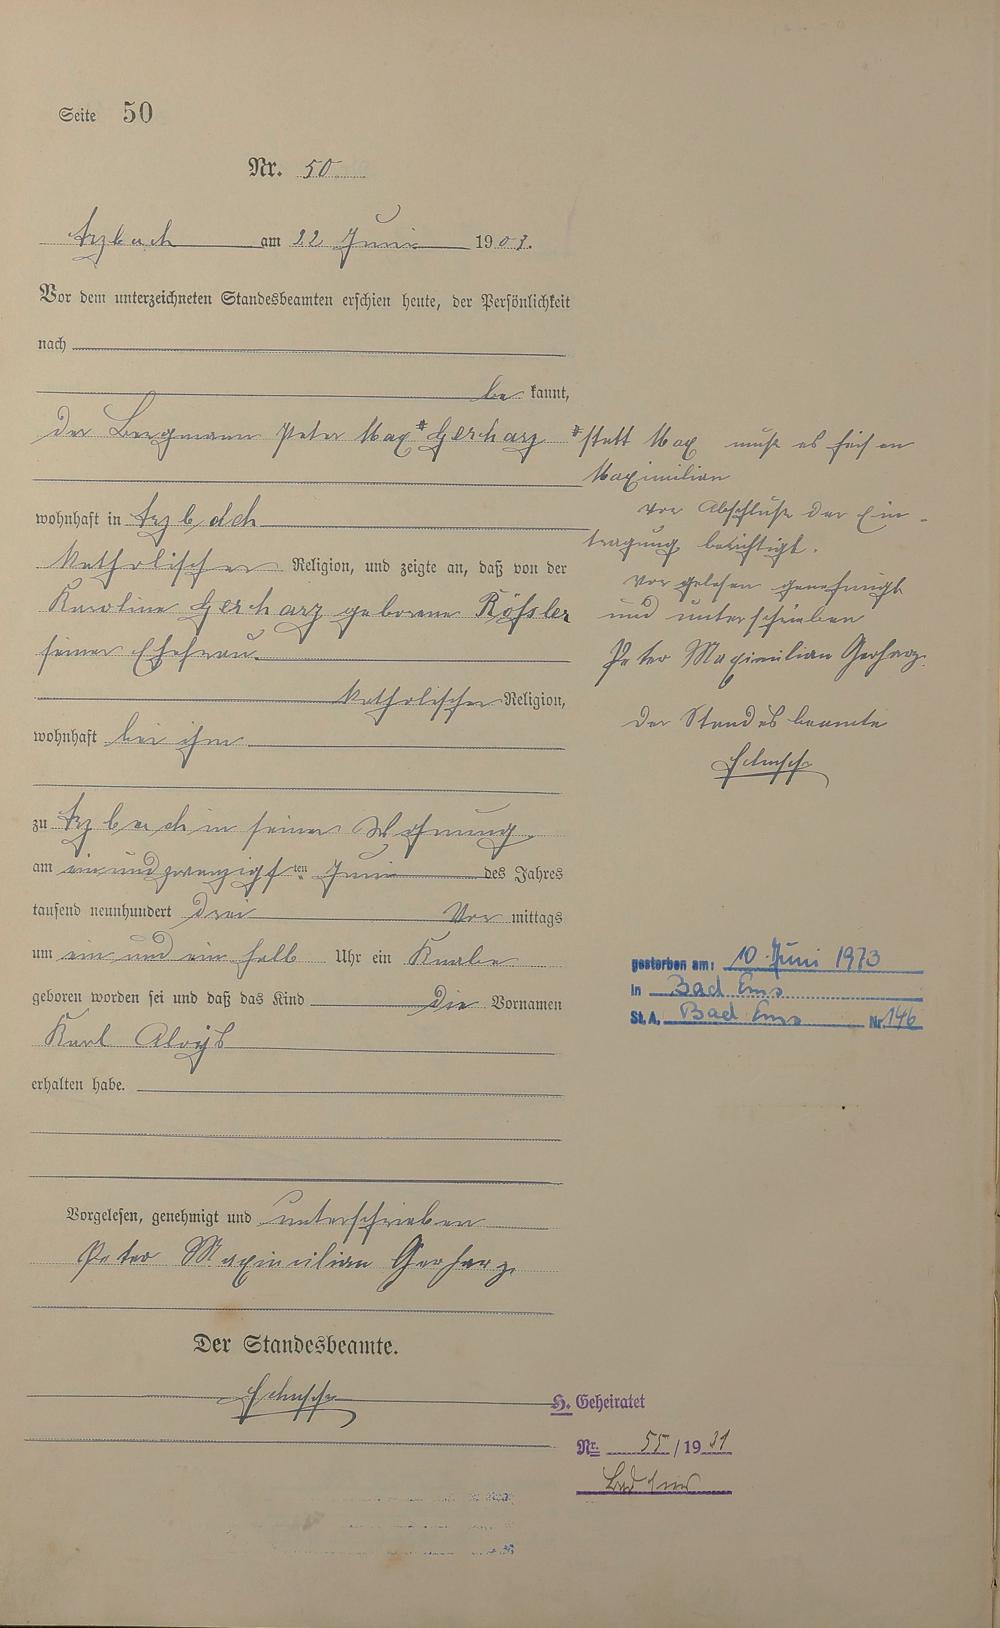 Seite 50
Nr. 50
Arzbach am 22 Juni 1903.
Vor dem unterzeichneten Standesbeamten erschien heute, der Persönlichkeit
nach
be kannt,
der Bergmann Peter Max * Gerharz
wohnhaft in Arzbach
katholischer Religion, und zeigte an, daß von der
Karoline Gerharz geborene Rößler
seiner Ehefrau
katholischer Religion,
wohnhaft bei ihm
zu Arzbach in seiner Wohnung
am einundzwanzigsten Juni des Jahres
tausend neunhundert drei Vor mittags
um ein und ein halb Uhr ein Knabe
geboren worden sei und daß das Kind die Vornamen
Karl Aloys
erhalten habe.
Vorgelesen, genehmigt und unterschrieben
Peter Maximilian Gerharz.
Der Standesbeamte.
* statt Max muß es heißen
Maximilian
vor Abschluß der Ein-
tragung berichtigt.
Vorgelesen genehmigt
und unterschrieben
Peter Maximilian Gerharz.
Der Standesbeamte
gestorben am: 10. Juni 1973
in Bad Ems
St. A. Bad Ems Nr. 146
H. Geheiratet
Nr. 55/1931
Bad Ems